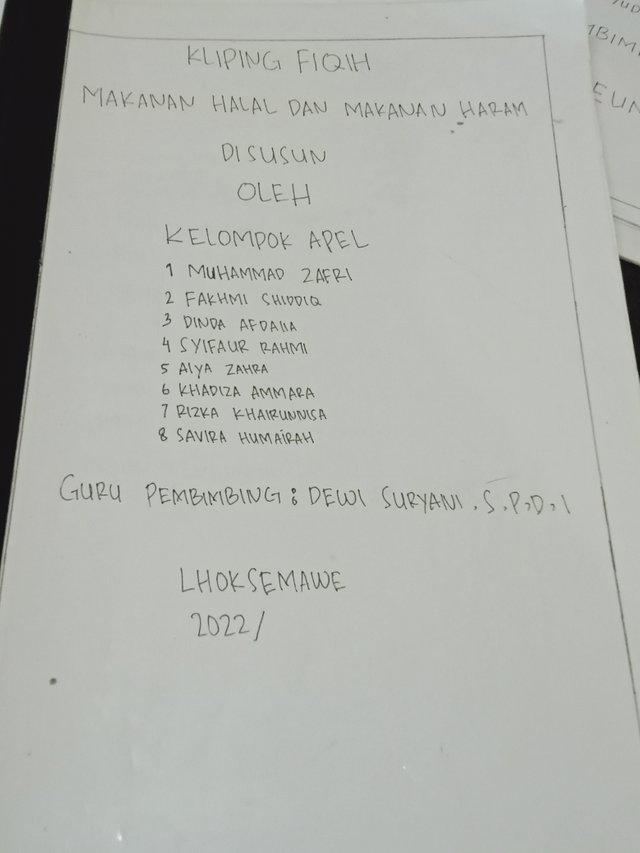 KLIPING FIQIH
MAKANAN HALAL DAN MAKANAN HARAM
DISUSUN
OLEH
KELOMPOK APEL
1 MUHAMMAD ZAFRI
2 FAKHMI SHIDDIQ
3 DINDA AFDALIA
4 SYIFAUR RAHMI
5 AIYA ZAHRA
6 KHADIZA AMMARA
7 RIZKA KHAIRUNNISA
8 SAVIRA HUMAIRAH
GURU PEMBIMBING : DEWI SURYANI . S . P , D , I
LHOKSEMAWE
2022/